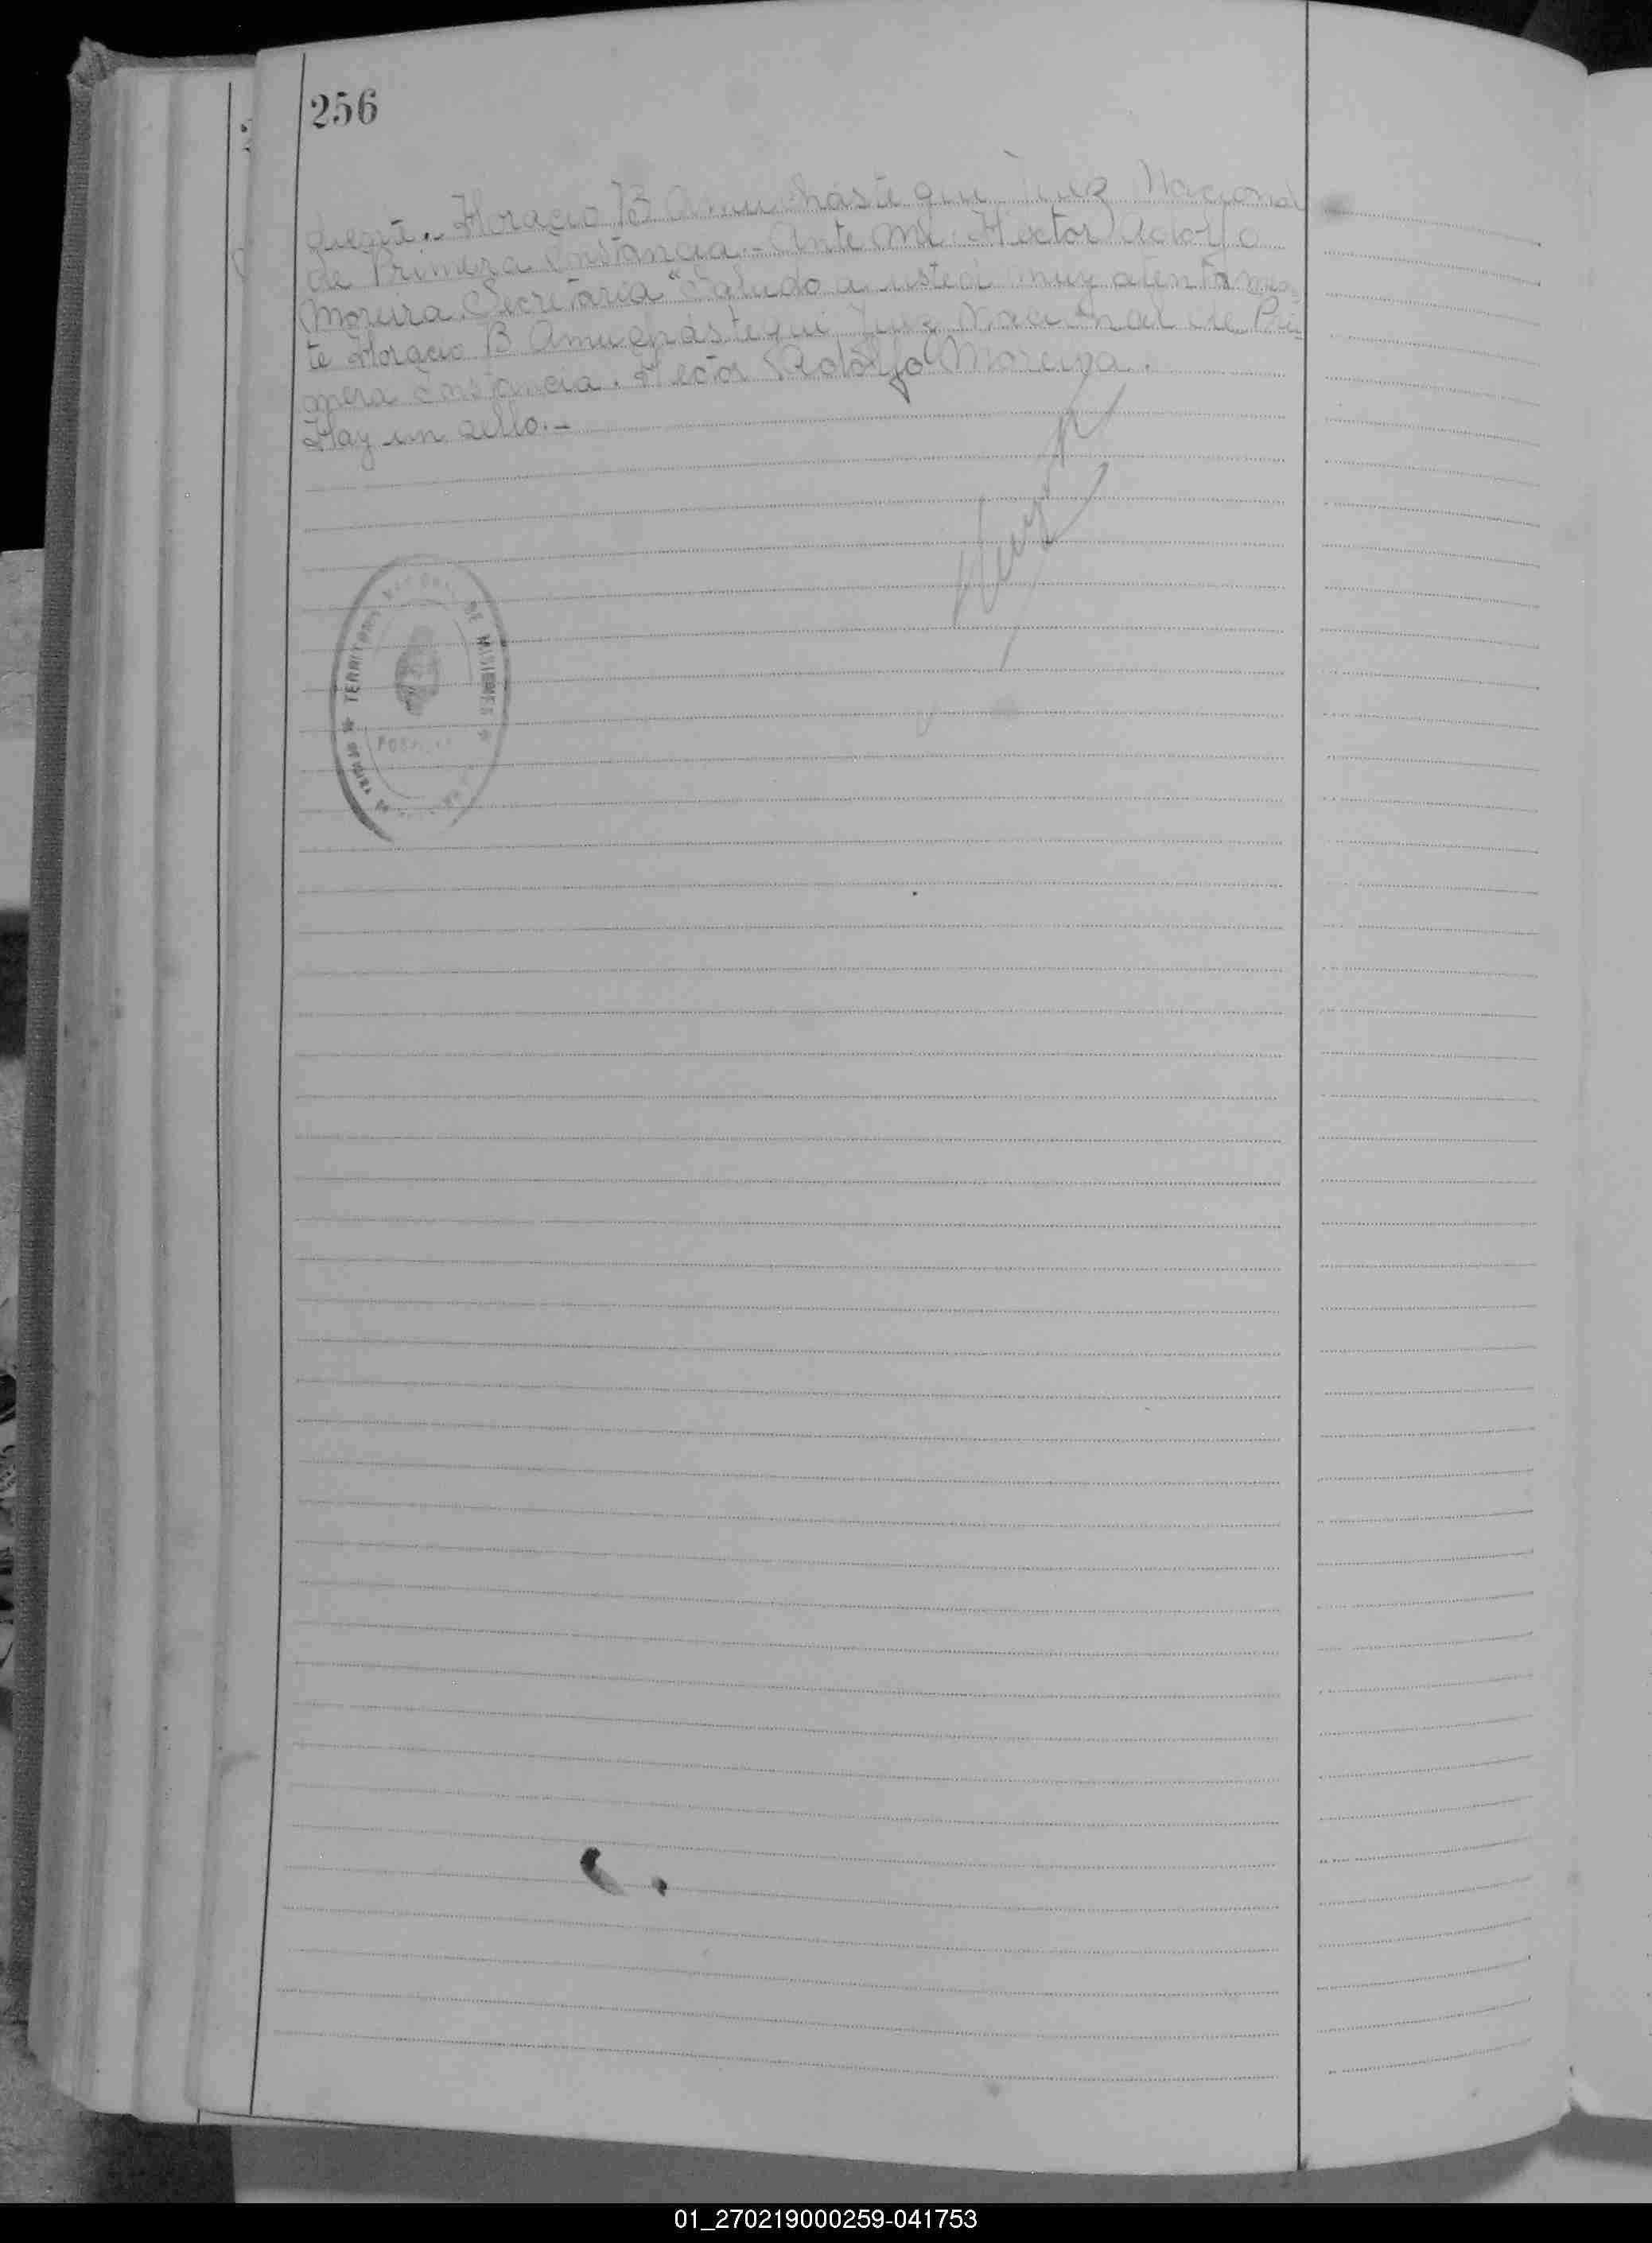 256
Horacio B Amuchástegui Juez Nacional
de Primera Instancia.- Ante mi. Hector Adolfo
Moreira. Secretaria "Saludo a usted muy atentamen-
te Horacio B Amuchástegui Juez Nacional de Pri-
mera Instancia. Hector Adolfo Moreira.
Hay un sello.-
TERRITORIO NACIONAL DE MISIONES
POSADAS
01_270219000259-041753